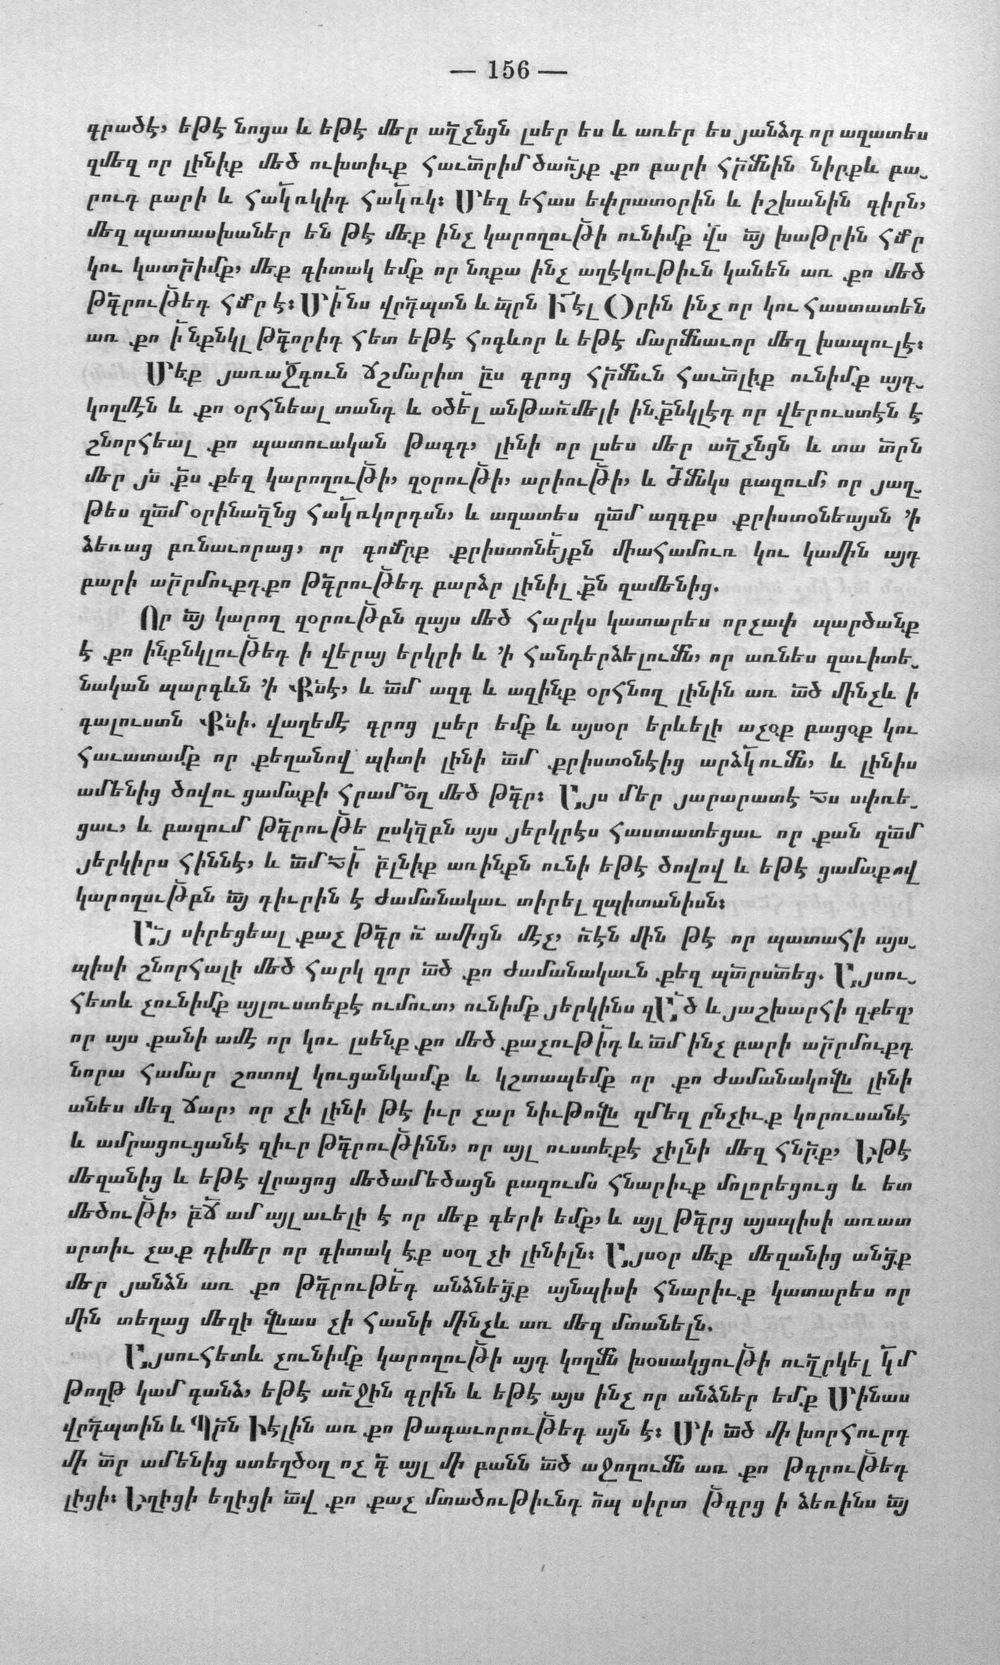 — 156 —
գրածէ, եթէ նոցա և եթէ մեր աղ՟չնցն լսեր ես և առեր ես յանձդ որ ազատես
զմեզ որ լինիք մեծ ուխտիւք հաւտ՟րիմ ծառ՟յք քո բարի հր՟մնին ներքև բա֊
րուդ բարի և հակ՟ռկիդ հակ՟ռկ։ Մեզ եհաս եփրատօրին և իշխանին գիրն,
մեզ պատասխաներ են թէ մեք ինչ կարողութ՟ի ունիմք վս՟ ա՟յ խաթրին համր
կու կատր՟իմք, մեք գիտակ եմք որ նոքա ինչ աղէկութիւն կանեն առ քո մեծ
թգ՟րութ՟եդ համր է։ Մի՟նս վրդ՟պտն և պ՟րն Ի՟էլ Օրին ինչ որ կու հաստատեն
առ քո ի՟նքնկլ թգ՟որիդ հետ եթէ հոգևոր և եթէ մարմնաւոր մեղ խապուլէ։
Մեք յառաջգուն ճշմարիտ ա՟ս գրոց հր՟մնւն հաւտ՟լիք ունիմք այդ֊
կողմէն և քո օրհնեալ տանդ և օծել՟ անթառ՟մելի ինք՟նկլէդ որ վերուստէն է
շնորհեալ քո պատուական թագդ, լինի որ լսես մեր աղ՟չնցն և տա տ՟րն
մեր յ՟ս ք՟ս քեզ կարողութ՟ի, զօրութ՟ի, արիութ՟ի, և ժմնկս բազում, որ յաղ֊
թես զա՟մ օրինադ՟նց հակ՟ռկորդսն, և ազատես զա՟մ ազգքս քրիստօնեայսն ՚ի
ձեռաց բռնաւորաց, որ գումրք քրիստոնե՟յքն միահամուռ կու կամին այդ
բարի ար՟րմուքդ քո թգ՟րութ՟եդ բարձր լինիլ ք՟ն զամենից.
Որ ա՟յ կարող զօրութ՟բն զայս մեծ հարկս կատարես որչափ պարծանք
է քո ինքնկլութ՟եդ ի վերայ երկրի և ՚ի հանդերձելումն, որ առնես զաւիտե֊
նական պարգևն ՚ի Քնէ, և ա՟մ ազգ և ազինք օրհնող լինին առ ա՟ծ մինչև ի
գալուստն Քնի. վաղեմէ գրոց լսեր եմք և այսօր երևելի աչօք բացօք կու
հաւատամք որ քեղանով պիտի լինի ա՟մ քրիստօնէից արձկ՟ումն, և լինիս
ամենից ծովու ցամաքի հրամ՟օղ մեծ թգ՟ր։ Այս մեր յարարատէ Տս սփռե֊
ցաւ, և բազում թգ՟րութե ըսկզ՟բն այս յերկրէս հաստատեցաւ որ քան զա՟մ
յերկիրս հիննէ, և ա՟մ Տի՟ բ՟լնիք առ ինքն ունի եթէ ծովով և եթէ ցամաքով
կարողսւթ՟բն ա՟յ դիւրին է ժամանակաւ տիրել զպիտանիսն։
Ա՟յ սիրեցեալ քաչ թգ՟ր ն՟ ամիցն մէչ, ն՟էն մին թէ որ պատահի այս֊
պիսի շնորհալի մեծ հարկ զոր ա՟ծ քո ժամանակաւն քեզ պտ՟րստ՟եց. Այսու֊
հետև չունիմք այլուստեքէ ումուտ, ունիմք յերկինս զԱ՟ծ և յաշխարհի զքեզ,
որ այս քանի ամէ որ կու լսենք քո մեծ քաչութ՟իդ և ա՟մ ինչ բարի ար՟րմուքդ
նորա համար շոտով կուցանկամք և կշտապեմք որ քո ժամանակովն լինի
անես մեզ ճար, որ չի լինի թէ իւր չար նիւթովն զմեզ ընչիւք կորուսանէ
և ամրացուցանէ զիւր թգ՟րութ՟ինն, որ այլ ուստեքէ չիլնի մեզ հնր՟ք, Եթէ
մեզանից և եթէ վրացոց մեծամեծացն բազումս հնարիւք մոլորեցուց և ետ
մեծութ՟ի, բճ՟ ամ այլ աւելի է որ մեք գերի եմք, և այլ թգ՟րց այսպիսի առատ
սրտիւ չաք դիմեր որ գիտակ էք սօղ չի լինիլն։ Այսօր մեք մեզանից անց՟ք
մեր յանձն առ քո թգ՟րութե՟դ անձնեց՟ք այնպիսի հնարիւք կատարես որ
մին տեղաց մեզի վնաս չի հասնի մինչև առ մեզ մտանելն.
Այսուհետև չունիմք կարողութ՟ի այդ կողմն խօսակցութ՟ի ուղ՟րկել կ՟մ
թողթ կամ գանձ, եթէ առ՟ջին գրին և եթէ այս ինչ որ անձներ եմք Մինաս
վրդ՟պտին և Պր՟ն Իէլին առ քո թագաւորութ՟եդ այն է։ Մի ա՟ծ մի խորհուրդ
մի տ՟ր ամենից ստեղծօղ ոչ գ՟ այլ մի բանն ա՟ծ աջողումն առ քո թգրութ՟եդ
լիցի։ Եղիցի եղիցի ա՟վ քո քաչ մտածութիւնդ ո՟պ սիրտ թ՟գրց ի ձեռինս ա՟յ